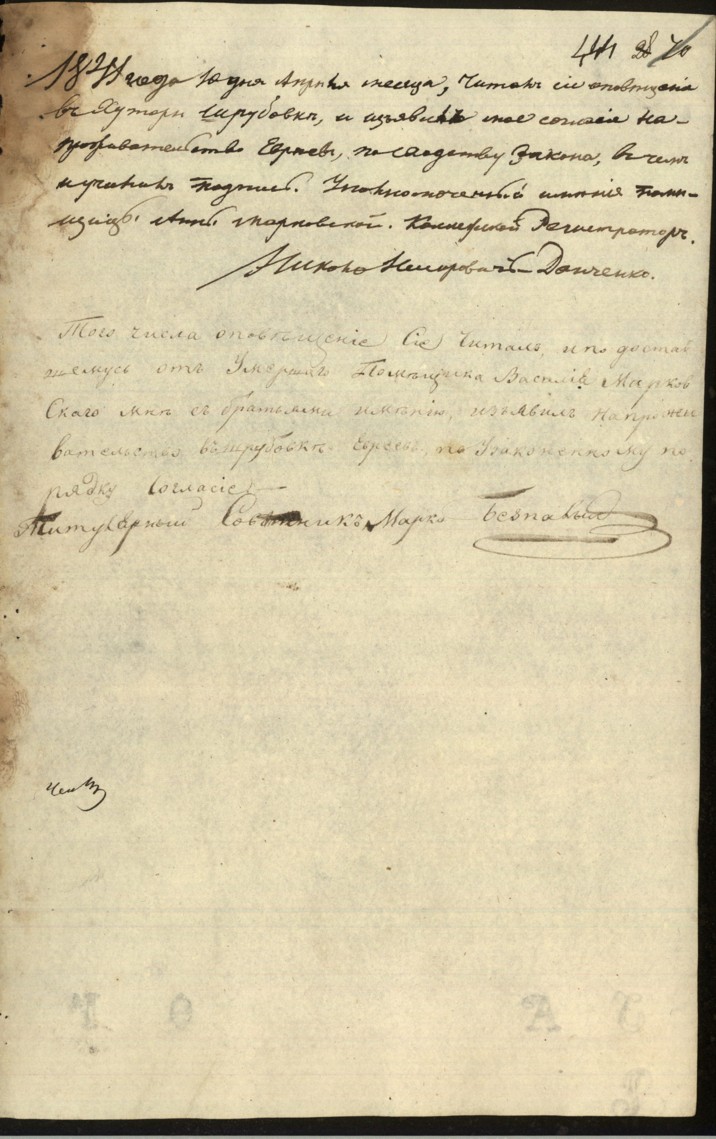 41 28 70
1841 года 10 дня Априля месеца, Читалъ сіе оповѣщеніе
въ Хуторѣ Шрубовкѣ, и изъявилъ мое согласіе на
прожъвательство Евреевъ, по сводству Закона, въ чемъ
и учинилъ подпись. Уполномоченый имѣнія Помѣ-
щицы Анны Марковской. Колежскій Регистраторъ.
Данченко.
Того числа оповѣщеніе Сіе Читалъ, и по достав
шемусь отъ Умершаго Помѣщика Василія Марков
Скаго мнѣ съ братьями имѣнію, изъявилъ на прожи
вательство въ Шрубовкѣ Евреевъ, по Узаконенному по
рядку Согласіе
Титулярный Совѣтникъ Марко